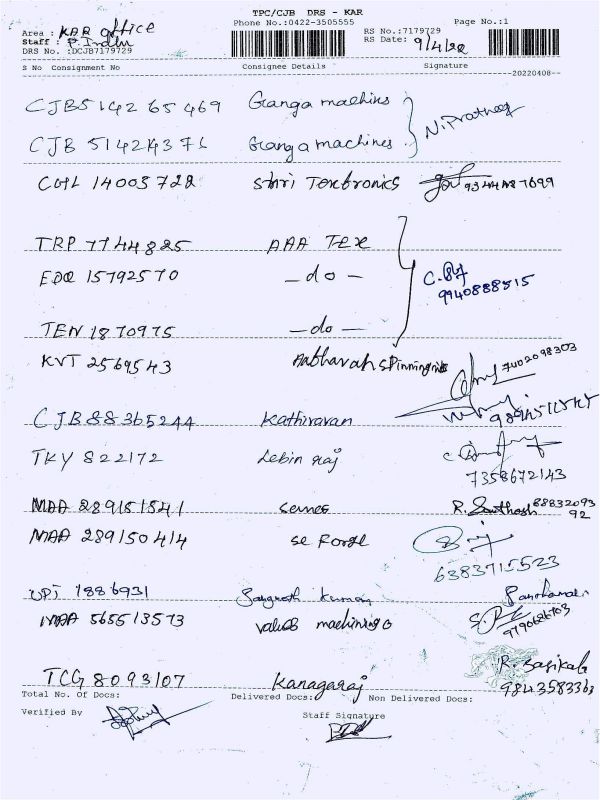 TPC/CJB DRS - KAR
Area : KAR office Phone No.:0422-3505555 Page No.:1
Staff : P. Indhu RS No.:7179729
DRS No. :DCJB7179729 RS Date: 9/4/22
S No Consignment No Consignee Details Signature
--20220408--
CJB514265469 Ganga machins
CJB 51424376 Ganga machines N. Prathap
14003722 Shri Texbronics
TRP 7744825 AAA Tex
EDQ 15792570 - do - C.
9940888515
TEN 1870975 - do -
KVT 2569543 spinning mills 7402098303
CJB88365244 Kathiravan
TKY 822172 Lebin raj
7358672143
MAA 289151541 semes R. Santhosh 8883209392
MAA 289150414 se Forge
6383715523
UPT 1886931 kumar
MAA 565513573 values machining
TCG 8093107 Kanagaraj R. Sasikala
9843583363
Total No. Of Docs: Delivered Docs: Non Delivered Docs:
Verified By Staff Signature